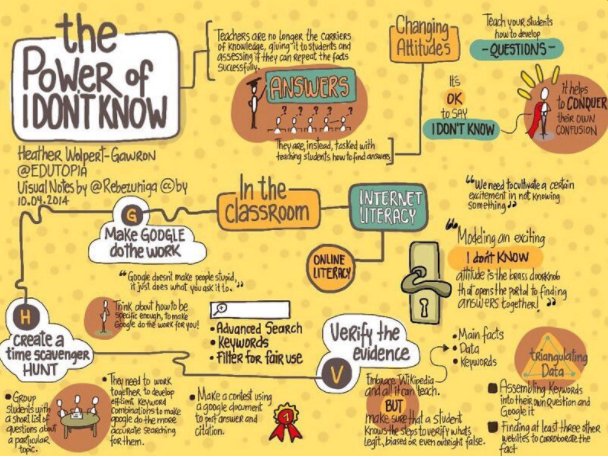 the
POWER of
I DON'T KNOW
Heather Wolpert-Gawron
@EDUTOPIA
Visual Notes by @Rebezuniga
by
10.04.2014
Teachers are no longer the carriers
of knowledge, giving it to students and
assessing if they can repeat the facts
successfully.
ANSWERS
? ? ? ? ?
They are, instead, tasked with
teaching students how to find answers
Changing
Attitudes
Teach your students
how to develop
-QUESTIONS-
It's
OK
to SAY
I DON'T KNOW
it helps
to CONQUER
their own
CONFUSION
In the
classroom
INTERNET
LITERACY
ONLINE
LITERACY
"We need to cultivate a certain
excitement in not knowing
something"
"Modeling an exciting
I don't KNOW
attitude is the brass doorknob
that opens the portal to finding
answers together!"
G
Make GOOGLE
do the work
"Google doesn't make people stupid,
it just does what you ask it to."
Think about how to be
specific enough, to make
Google do the work for you!
• Advanced Search
• Keywords
• Filter for fair use
H
create a
time scavenger
HUNT
• Group
students with
a short list of
questions about
a particular
topic.
• They need to work
together to develop
efficient keyword
combinations to make
google do the more
accurate searching
for them.
• Make a contest using
a google document
to post answer and
citation.
1
Verify the
evidence
V
Embrace Wikipedia
and all it can teach.
BUT
make sure that a student
knows the steps to verify what's
legit, biased or even outright false.
• Main facts
• Data
• Keywords
triangulating
Data
Assembling keywords
into their own Question and
Google it
Finding at least three other
websites to corroborate the
fact